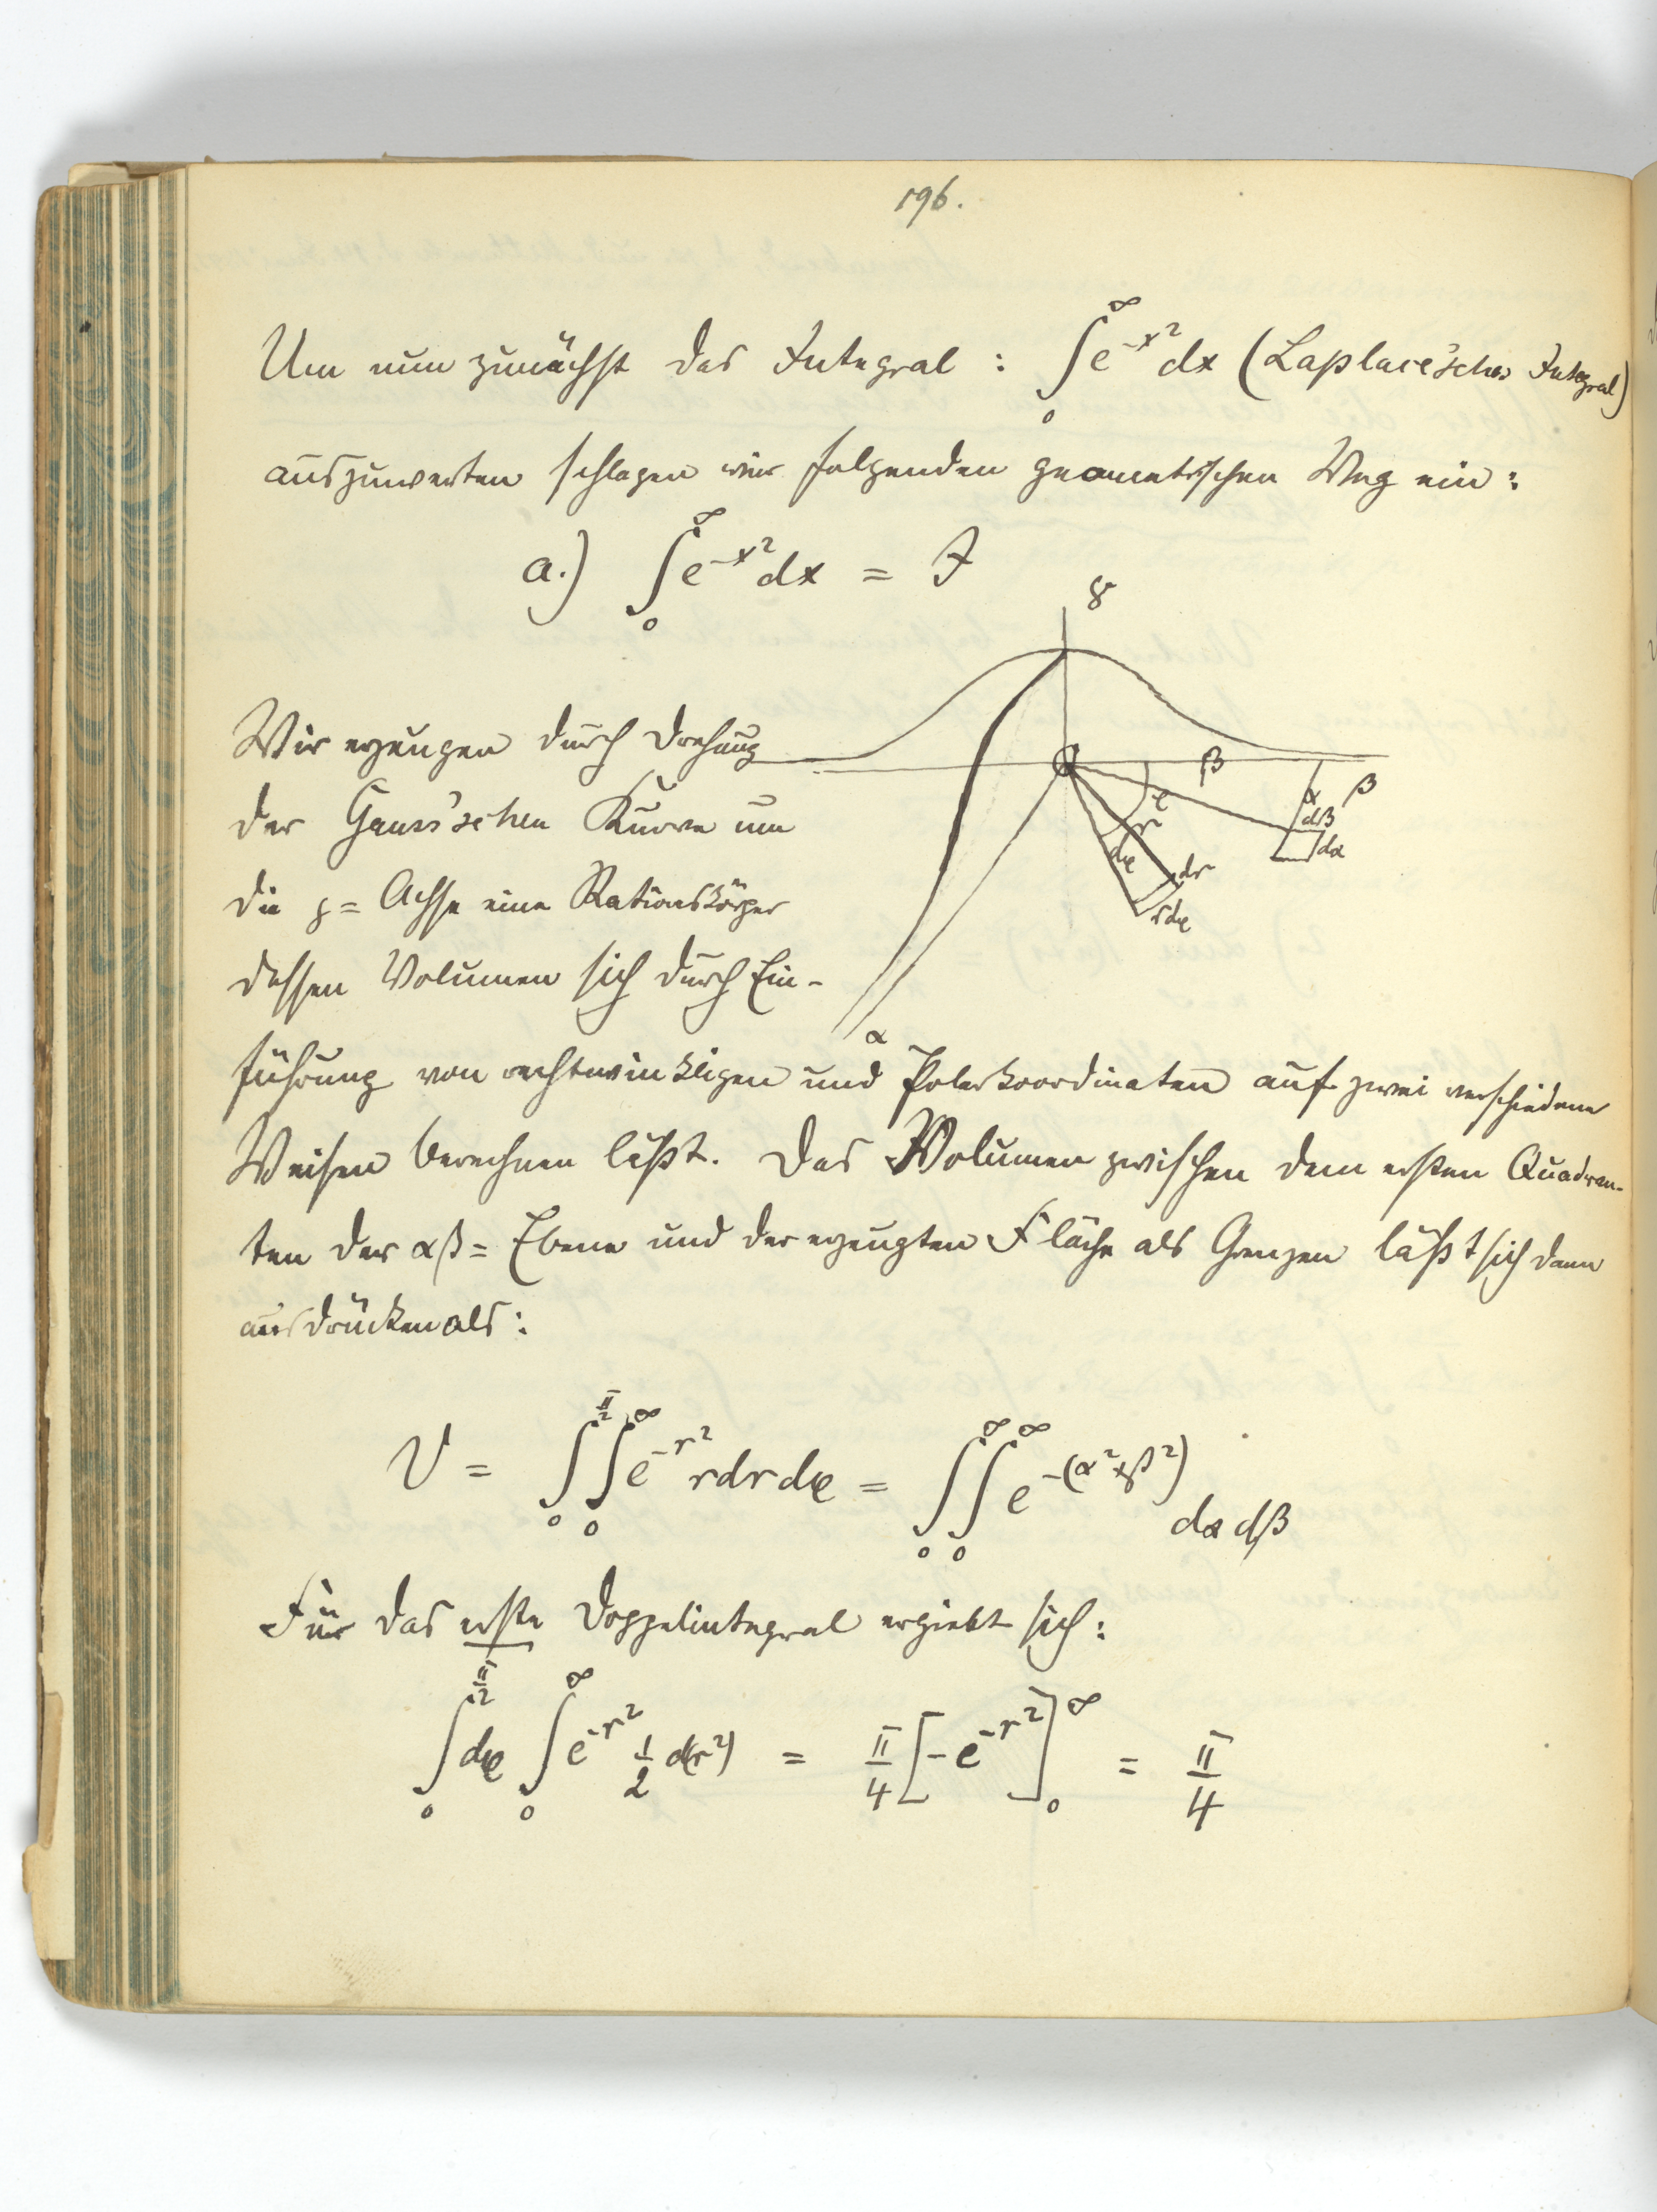 196.
Um nun zunächst das Integral : ∫₀^∞ e^{-x²} dx (Laplace'sches Integral)
auszuwerten schlagen wir folgenden geometrischen Weg ein :
a.) ∫₀^∞ e^{-x²} dx = J
γ
Wir erzeugen durch Drehung
der Gauss'schen Kurve um
die z = Achse eine Rationskörper
dessen Volumen sich durch Ein-
β
β
φ
r
dφ
dr
rdφ
α
dβ
dα
α
führung von rechtwinkligen und Polarkoordinaten auf zwei verschiedene
Weisen berechnen läßt. Das Volumen zwischen dem ersten Quadran-
ten der αβ = Ebene und der erzeugten Fläche als Grenzen läßt sich dann
ausdrücken als :
V = ∫₀^{π/2} ∫₀^∞ e^{-r²} r dr dφ = ∫₀^∞ ∫₀^∞ e^{-(α²+β²)} dα dβ
Für das erste Doppelintegral ergiebt sich :
∫₀^{π/2} dφ ∫₀^∞ e^{-r²} 1/2 d(r²) = π/4 [-e^{-r²}]₀^∞ = π/4